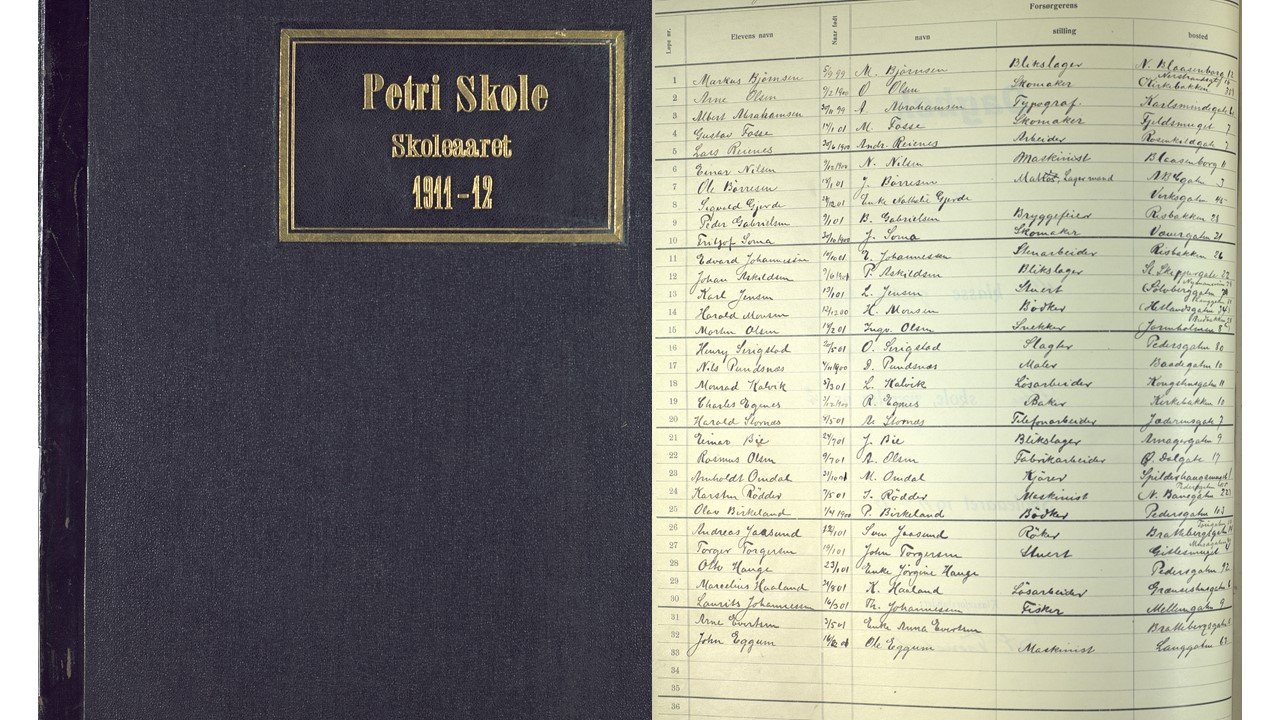 Petri Skole
Skoleaaret
1911-12
Forsørgerens
Løpe nr. Elevens navn Naar født navn stilling bosted
1 Markus Bjørnsen 5/9 99 M. Bjørnsen Blikslager N. Blaasenborg
2 Arne Olsen O Olsen Skomaker Kirkebakken
3 Albert Abrahamsen A Abrahamsen Typograf.
4 Gustav Fosse M. Fosse Skomaker Fjeldsmuget 7
5 Lars Reienes Andr. Reienes Arbeider 7
6 Einar Nilsen N. Nilsen Maskinist Blaasenborg 11
7 Ole Børresen J. Børresen Lagermand 3
8 Sigvald Gjerde Enke Nathalie Gjerde Verksgaten 45
9 Peder Gabrielsen B. Gabrielsen Bryggefeier Risbakken 28
10 Fritjof Soma J. Soma Skomaker Vævergaten 21
11 Edvard Johannessen E. Johannessen Stenarbeider Risbakken 26
12 Johan Askildsen P. Askildsen Blikslager St. Skippergate 22
13 Karl Jensen L. Jensen Stuert Solvberggaten
14 Harald Monsen H. Monsen Bødker Hetlandsgaten
15 Morten Olsen Ingv. Olsen Snekker
16 Henry Serigstad 20/5 01 O. Serigstad Slagter Pedersgaten 80
17 Nils Pundsnes D. Pundsnes Maler Baadegaten 10
18 Monrad Kalvik L. Kalvik Løsarbeider Kongshusgaten 11
19 Charles Egenes R. Egenes Baker Kirkebakken 10
20 Harald 4/5 01 Telefonarbeider Jædernsgate 7
21 Einar Bie 24/9 01 J. Bie Blikslager Amagergaten 9
22 Rasmus Olsen 9/7 01 A. Olsen Fabrikarbeider Ø. Dalgate 17
23 Arnholdt Omdal M. Omdal Kjører Spilderhaugsmuget
24 Karsten Rödder 7/5 01 Rödder Maskinist N. Banegaten 22
25 Olav Birkeland 1/4 1900 P. Birkeland Bödker Pedersgaten 103
26 Andreas Jaasund Sven Jaasund Röker Brattebergsgaten
27 Torger Torgersen 19/1 01 John Torgersen Stuert Gislesmuget 4
28 Otto Hauge 23/1 01 Enke Jörgine Hauge Pedersgaten 92
29 Marselius Haaland 24/8 01 K. Haaland Lösarbeider Grænsehusgaten 6
30 Laurits Johannessen 16/3 01 Th. Johannessen Fisker Mellemgaten 9
31 Arne Evertsen 3/5 01 Enke Anna Evertsen Brattebergsgaten
32 John Eggum Ole Eggum Maskinist Langgaten 62
33
34
35
36